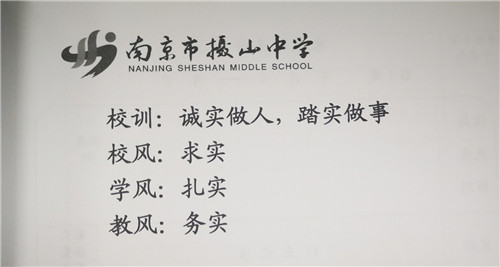 南京市摄山中学
NANJING SHESHAN MIDDLE SCHOOL
校训：诚实做人，踏实做事
校风：求实
学风：扎实
教风：务实